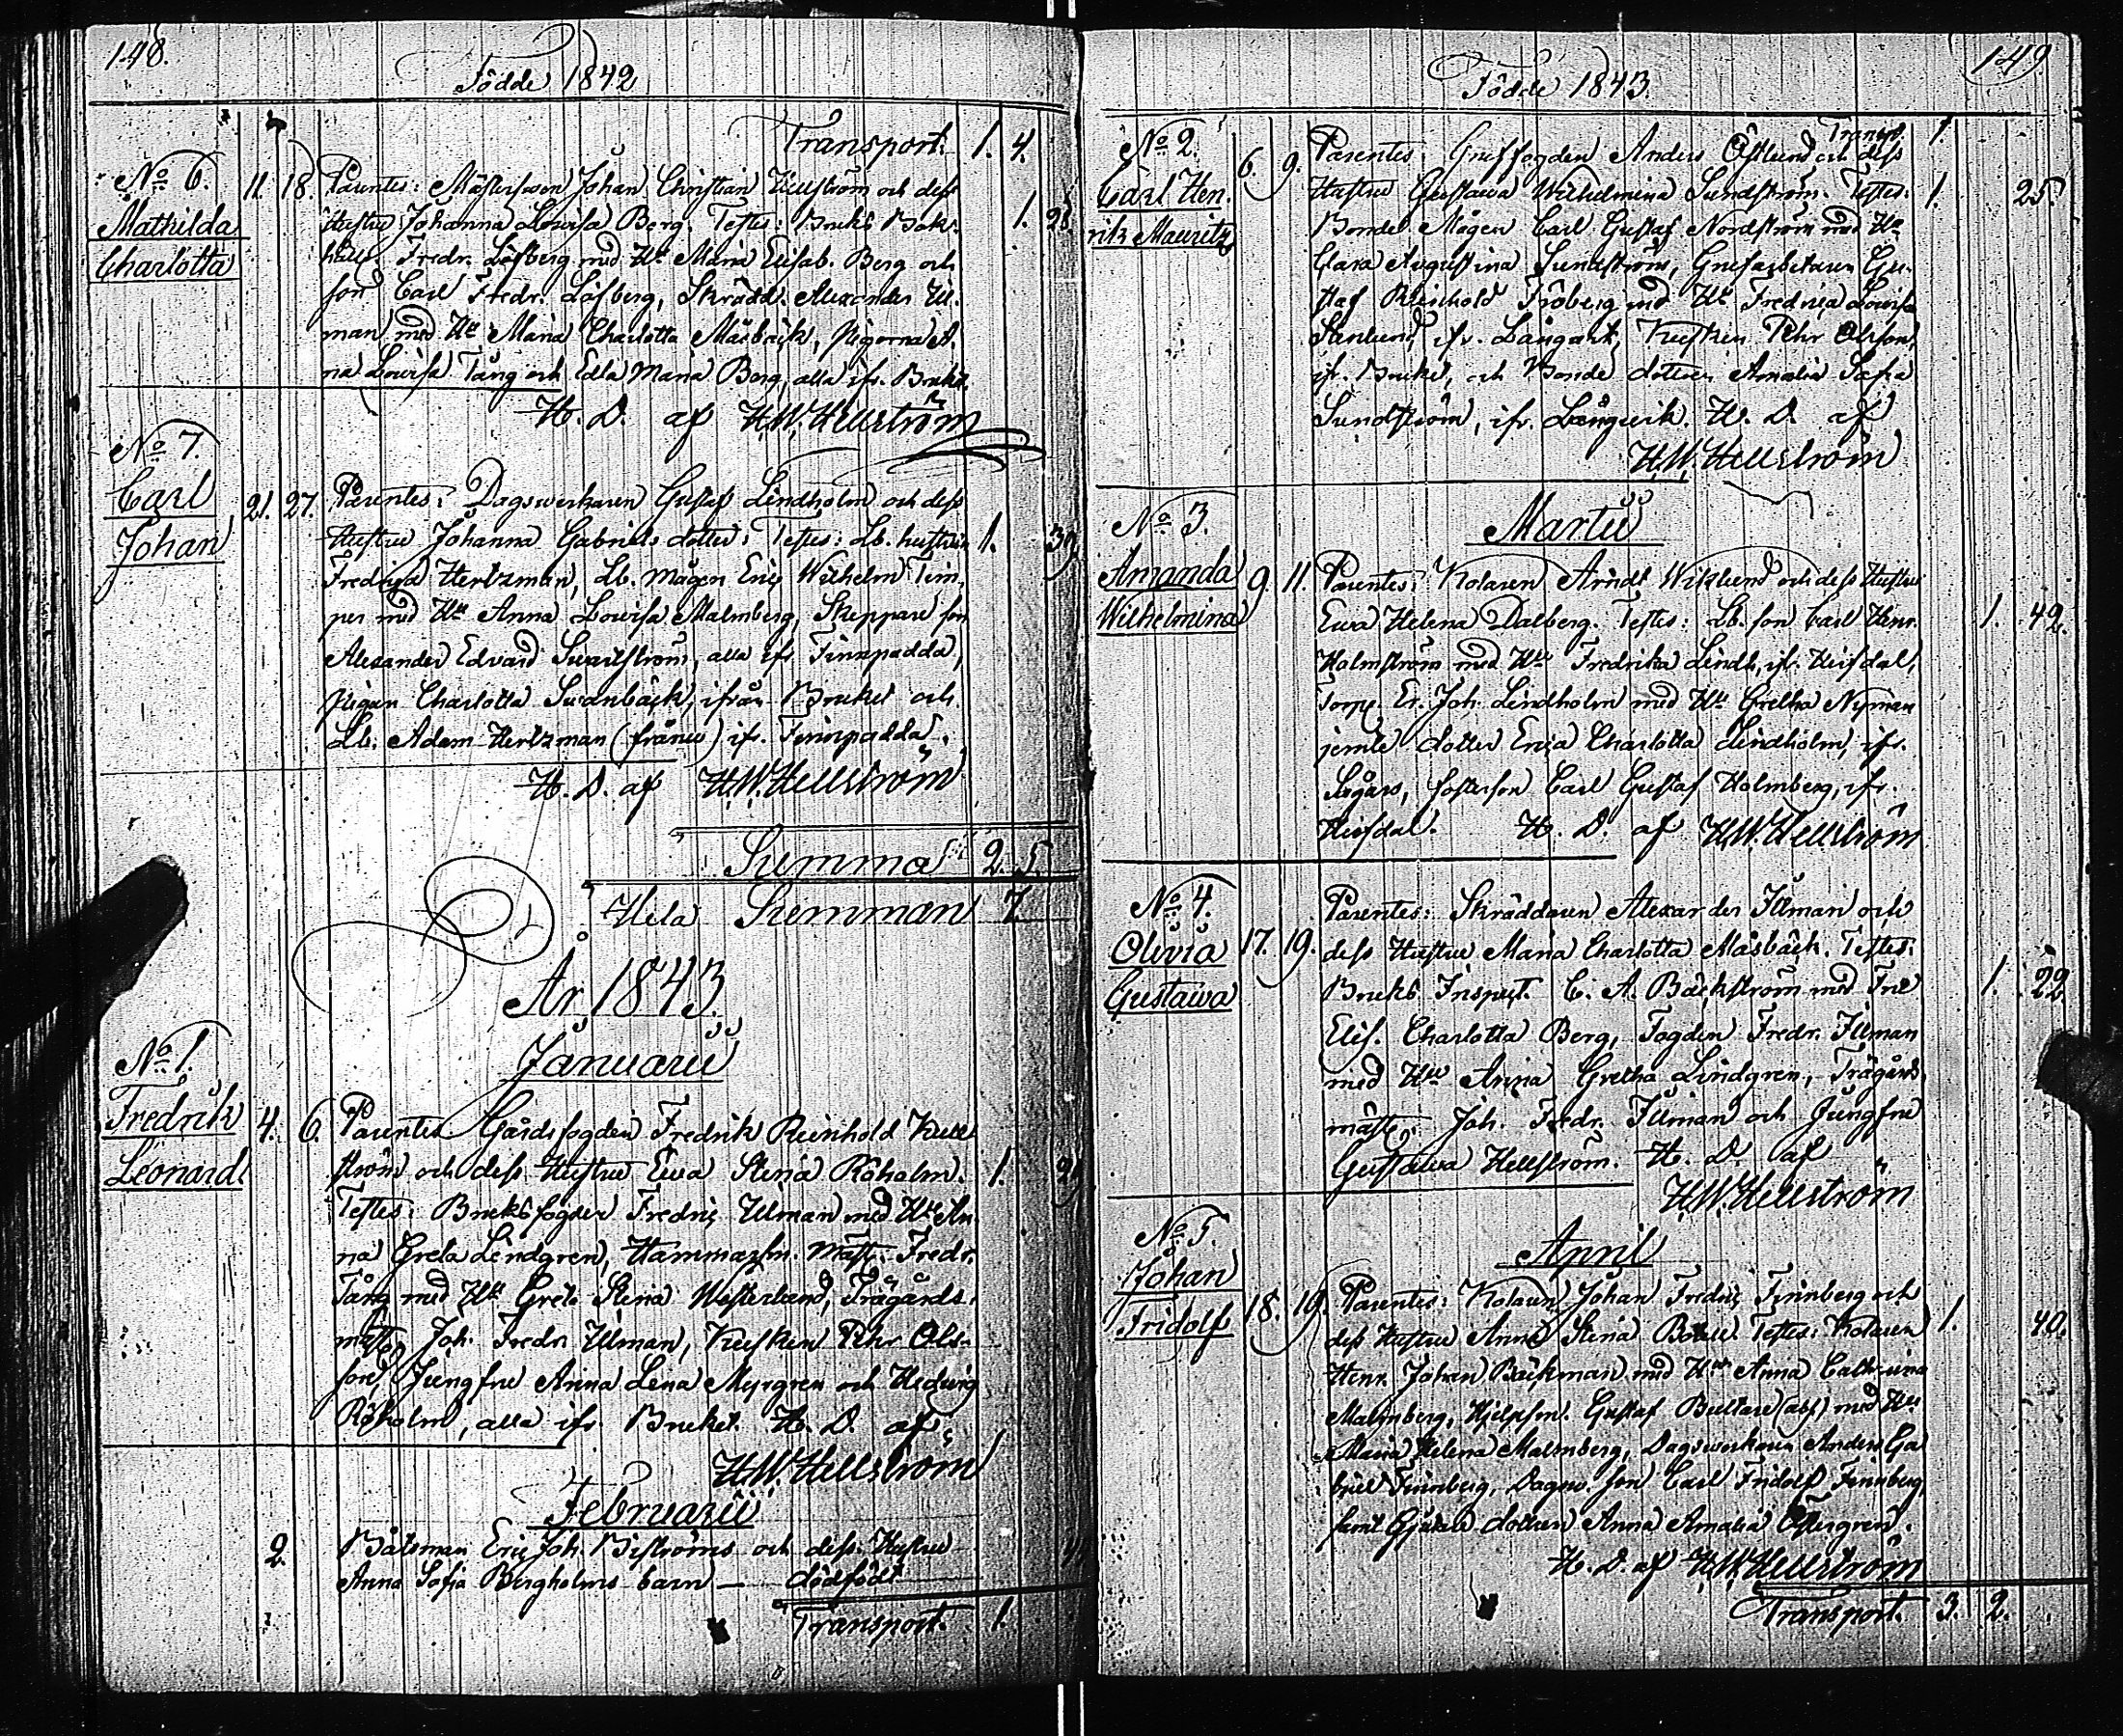 148.
Födde 1842
Transport. 1. 4.
No 6. 11. 18. Parentes: Mästersven Johan Christian Hellström och dess
Mathilda Hustru Johanna Lovisa Berg. Testes: Bruks Bok- 1. 28
Charlotta håll. Fredr. Löfberg med Hu Maria Elisab. Berg och
son Carl Fredr. Löfberg, Skrädd. Alexander Ill-
man med Hu Maria Charlotta Måsbäck, pigorna An-
na Lovisa Tång och Edla Maria Berg, alla ifr. Bruket.
H. D. af H.W. Hellström
No 7.
Carl 21. 27. Parentes: Dagsverkaren Gustaf Lindholm och dess
Johan Hustru Johanna Gabriels dotter. Testes: Lb. hustrun 1. 39
Fredrica Hertzman, Lb. mågen Eric Wilhelm Tim-
per med Hu Anna Lovisa Malmberg, Skeppare son
Alexander Edvard Svartström, alla ifr Finnpadda,
pigan Charlotta Svanbäck, ifrån Bruket och
Lb. Adam Hertzman (frånv) ifr. Finnpadda.
H. D. af H.W. Hellström
Summa 2. 5.
Hela Summan 7.
År 1843.
Januarii
No 1.
Fredrik 4. 6. Parentes Gårdsfogden Fredrik Reinhold Hell-
Leonard ström och dess Hustru Eva Stina Röholm. 1.
Testes: Bruksfogden Fredric Illman med Hu An-
na Greta Lindgren, Hammarsm. Mäst. Fredr.
Tång med Hu Greta Stina Westerlund, Trägårds-
mäst. Joh. Fredr. Illman, Kusken Pehr Ols-
son, Jungfru Anna Lena Myrgren och Hedvig
Röholm, alla ifr. Bruket. H. D. af
H.W. Hellström
Februarii
2. Båtsman Eric Joh. Biströms och dess Hustru
Anna Sofia Bergholms barn — dödfödt
Transport. 1.
149
Födde 1843.
Transp. 1.
No 2. 6. 9. Parentes: Gruffogden Anders Östlund och dess
Carl Hen- Hustru Gustawa Wilhelmina Sundström. Testes: 1. 25.
rik Mauritz Bonde Mågen Carl Gustaf Nordström med Hu
Clara Augustina Sundström, Grufarbetaren Gu-
staf Reinhold Fröberg med Hu Fredrica Lovisa
Stenlund, ifr. Långvik, Kusken Pehr Olsson,
ifr. Bruket, och Bonde dottren Amalia Sofia
Sundström, ifr. Långvik. H. D. af
H.W. Hellström
Martii
No 3.
Amanda 9. 11. Parentes: Kolaren Arndt Wiklund och dess Hustru
Wilhelmina Eva Helena Dalberg. Testes: Lb. son Carl Henr. 1. 42.
Holmström med Hu Fredrika Lindh, ifr.
Torp. Er. Joh. Lindholm med Hu Gretha Nyman
jemte dotter Erica Charlotta Lindholm, ifr.
fosterson Carl Gustaf Holmberg, ifr.
H. D. af H.W. Hellström
No 4. Parentes: Skräddaren Alexander Illman och
Olivia 17. 19. dess Hustru Maria Charlotta Måsbäck. Testes:
Gustawa Bruks Inspect. C. A. Bäckström med Fru 1. 22.
Elis. Charlotta Berg, Fogden Fredr. Illman
med Hu Anna Gretha Lindgren, Trägårds-
mäst. Joh. Fredr. Illman och Jungfru
Gustawa Hellström. H. D. af
H.W. Hellström
No 5. April
Johan 18. 19. Parentes: Kolaren Johan Fredric Finnberg och
Fridolf dess Hustru Anna Stina Testes: Kolaren 1. 40.
Henr. Johan Bäckman med Hu Anna Cathrina
Malmberg, Hjelpsm. Gustaf (abs) med Hu
Maria Helena Malmberg, Dagsverkaren Anders Ga-
briel Finnberg, Dagsv. son Carl Fridolf Finnberg,
samt dottren Anna Amalia Östergren.
H. D. af H.W. Hellström
Transport. 3. 2.